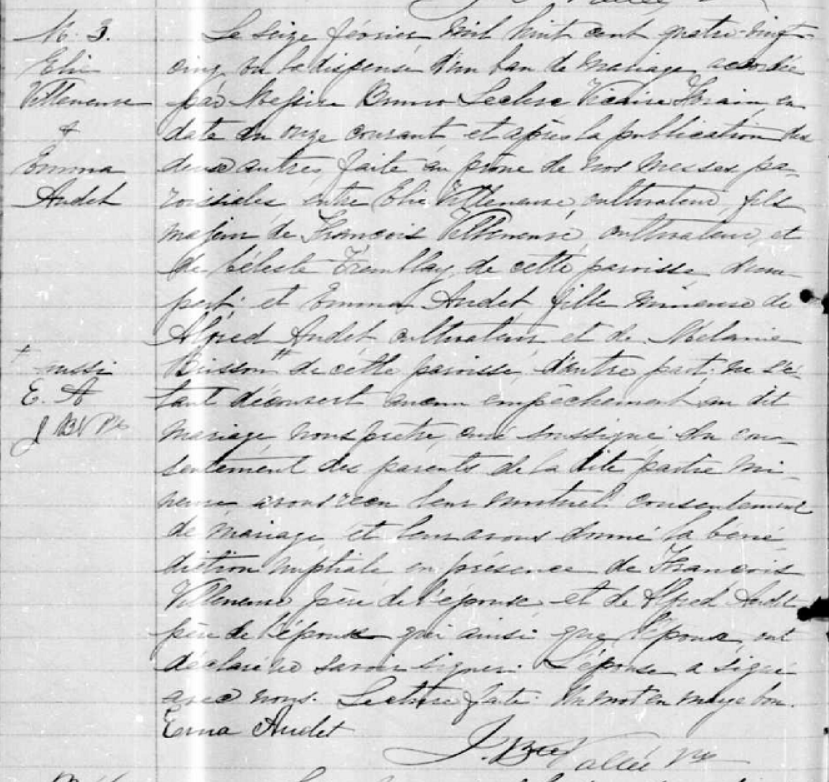 M. 3.
Elie
Villeneuve
&
Emma
Audet
Le seize février mil huit cent quatre-vingt
cinq, vu la dispense d'un ban de mariage accordée
par Messire Bruno Leclerc Vicaire Forain, en
date du onze courant et après la publication des
deux autres faite au prône de nos messes pa-
roissiales entre Elie Villeneuve, cultivateur, fils
majeur de François Villeneuve, cultivateur, et
de Céleste Tremblay, de cette paroisse d'une
part: et Emma Audet fille mineure de
Alfred Audet cultivateur et de Mélanie
Buisson # de cette paroisse, d'autre part: ne s'é-
tant découvert aucun empêchement au dit
mariage, nous prêtre, curé soussigné du con-
sentement des parents de la dite partie mi-
neure avons reçu leur mutuel consentement
de mariage et leur avons donné la béné-
diction nuptiale en présence de François
Villeneuve père de l'époux et de Alfred Audet
père de l'épouse qui ainsi que l'époux, ont
déclaré ne savoir signer. L'épouse a signé
avec nous. Lecture faite. Un mot en marge bon.
+ aussi
E. A
Ema Audet
Vallée